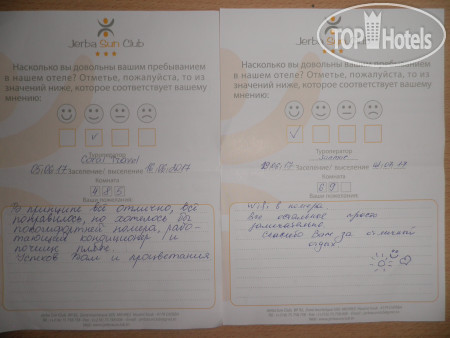 Jerba Sun Club
Насколько вы довольны вашим пребыванием
в нашем отеле? Отметье, пожалуйста, то из
значений ниже, которое соответствует вашему
мнению:
Туроператор
Coral Travel
Заселение/ выселение
Комната
Ваши пожелания
В принципе всё отлично, всё
понравилось, но хотелось бы
покомфортней номера, рабо-
тающий кондиционер и
почище пляж.
Успехов Вам и процветания
Jerba Sun Club
TOP Hotels
Насколько вы довольны вашим пребыванием
в нашем отеле? Отметье, пожалуйста, то из
значений ниже, которое соответствует вашему
мнению:
Туроператор
Заселение/ выселение
Комната
Ваши пожелания
Wi-fi в номера
Всё остальное просто
замечательно
Спасибо Вам за отличный
отдых